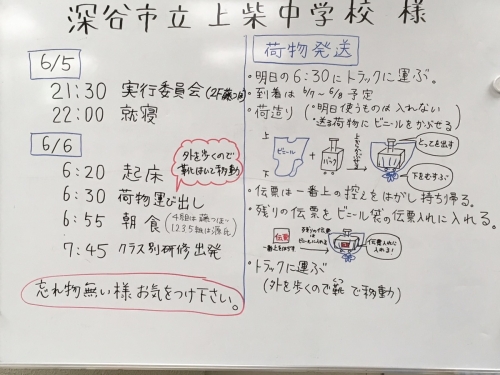 深谷市立上柴中学校 様
6/5
21:30 実行委員会(2F藤つぼ)
22:00 就寝
6/6
6:20 起床
外を歩くので
靴はいて移動
6:30 荷物運び出し
6:55 朝食(4組は藤つぼ
1,2,3,5組は源氏)
7:45 クラス別研修出発
忘れ物無い様お気をつけ下さい。
荷物発送
・明日の6:30にトラックに運ぶ。
・到着は6/7〜6/8予定
・荷造り(・明日使うものは入れない
・送る荷物にビニールをかぶせる)
上
下
ビニール
バッグ
上
下
上からかぶせる
とってを出す
下をむすぶ
・伝票は一番上の控えをはがし持ち帰る。
・残りの伝票をビニール袋の伝票入れに入れる。
伝票
一番上をはがす
残りの伝票は
ビニールに入れる
伝票入れに
入れる!
・トラックに運ぶ
(外を歩くので靴で移動)
くつ